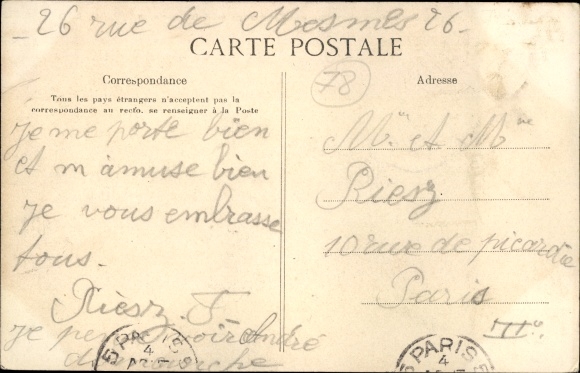 - 26 rue de Mesmes 26 -
CARTE POSTALE
78
Correspondance
Tous les pays étrangers n'acceptent pas la
correspondance au recto, se renseigner à la Poste
Je me porte bien
et m'amuse bien
je vous embrasse
tous.
Riesz F
je André
dimanche
Adresse
Mr et Mme
Riesz
10 rue de picardie
Paris
IIIe
PARIS
4
PARIS
4